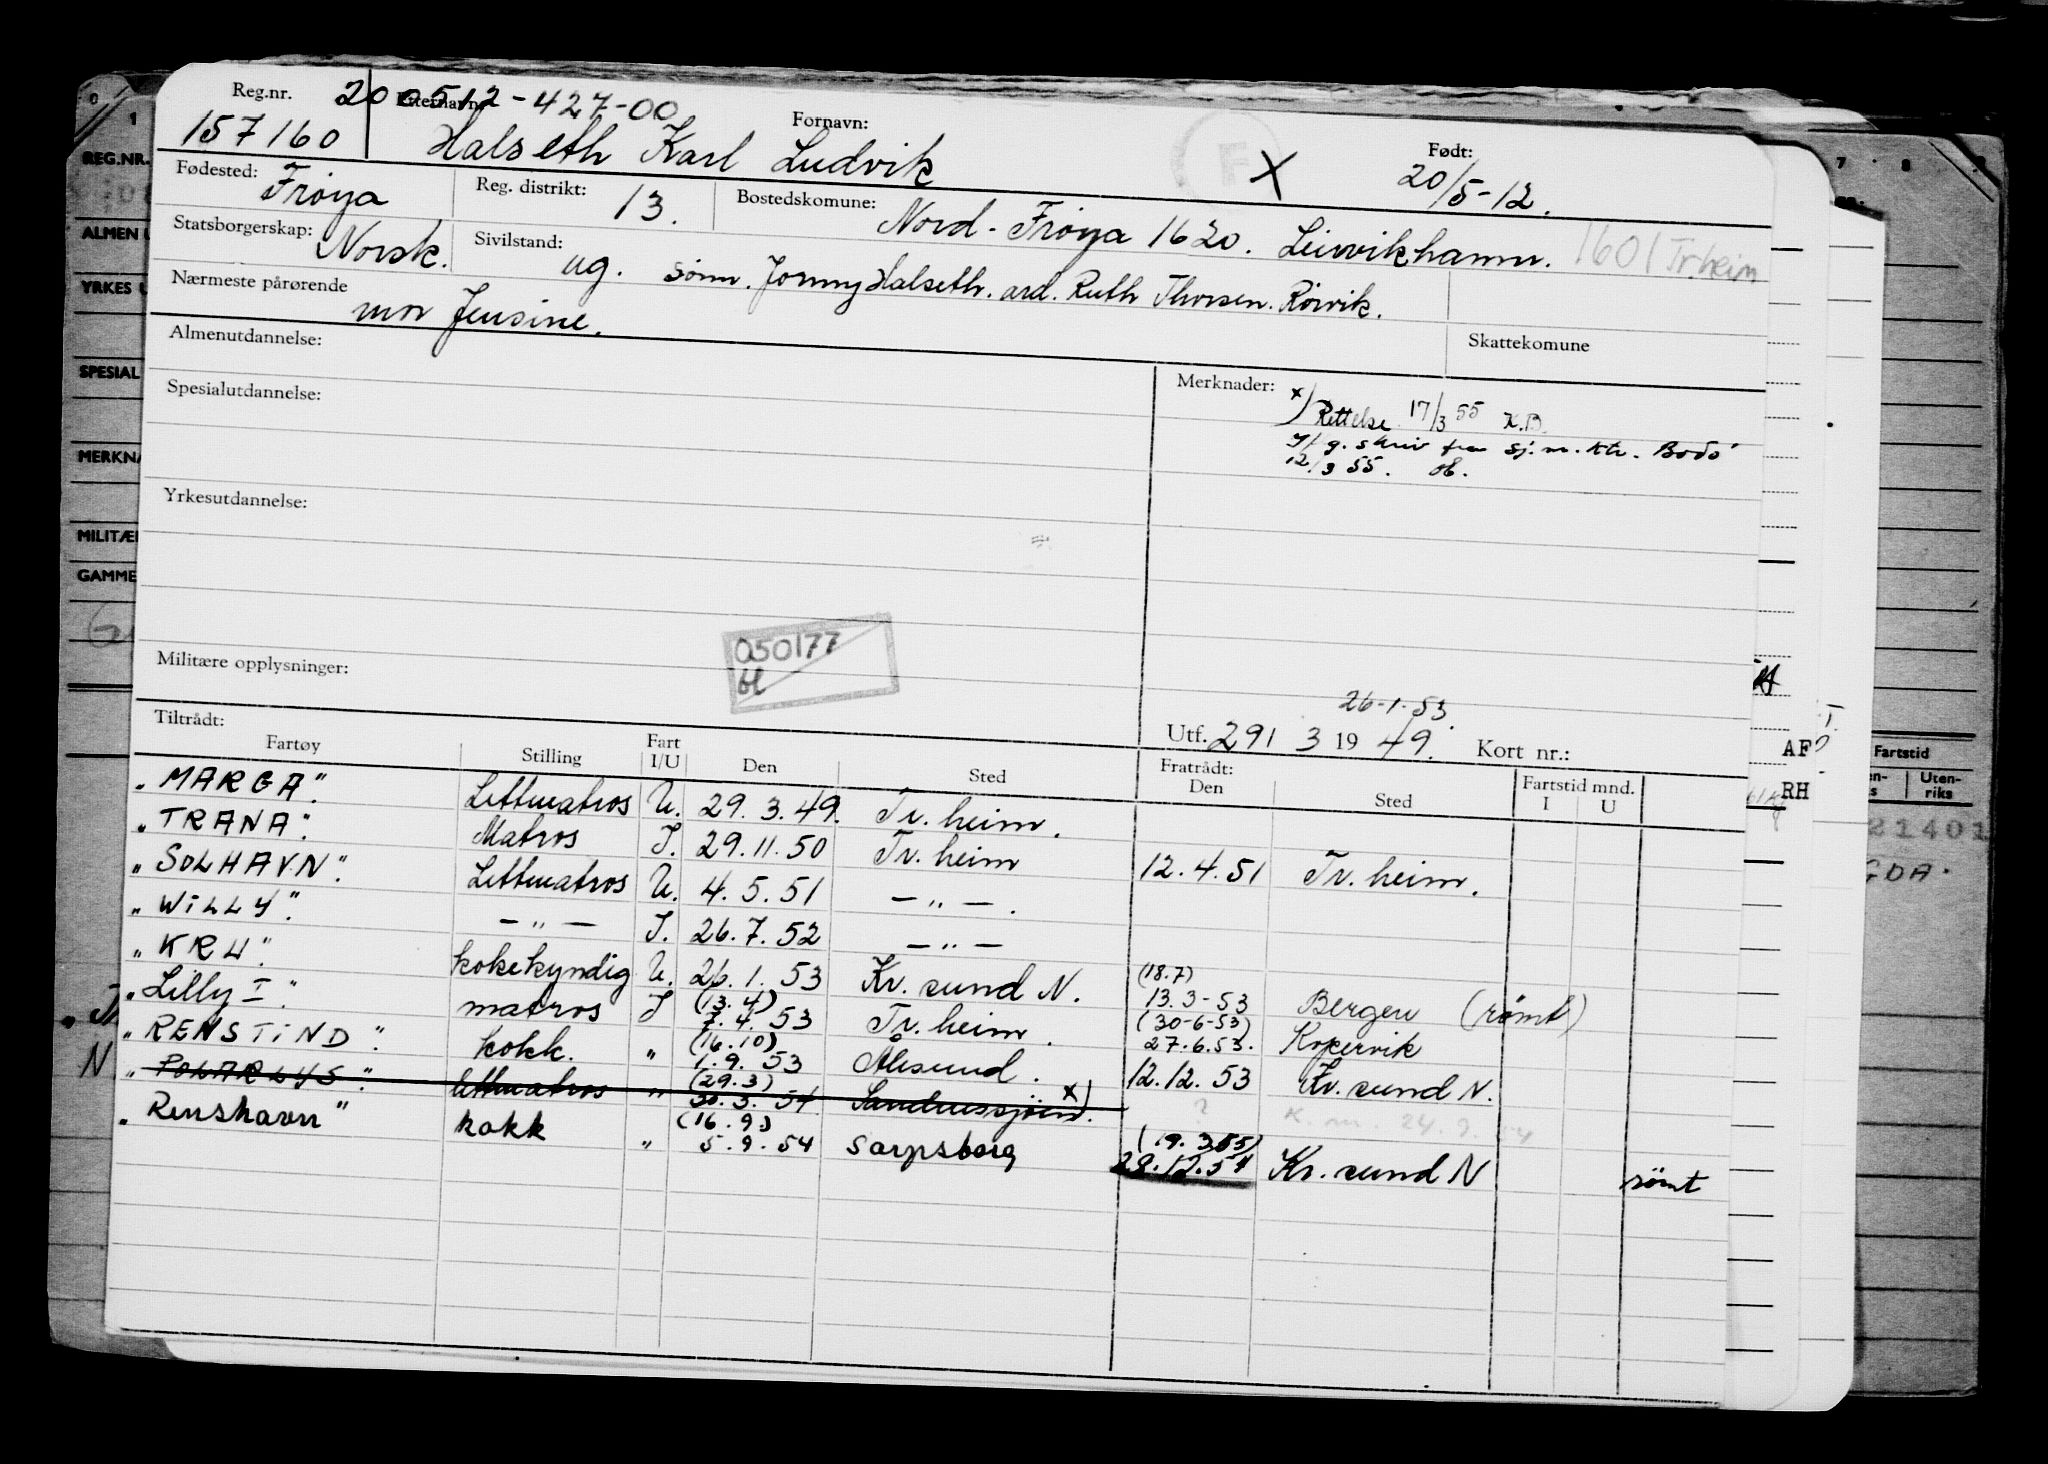 Reg.nr. 200512-427-00 Etternavn: Fornavn: Født:
157160 Halseth Karl Ludvik X 20/5-12.
Fødested: Frøya Reg. distrikt: 13. Bostedskomune: Nord-Frøya 1620. Leirvikhamn. 1601 Tr.heim
Statsborgerskap: Norsk. Sivilstand: ug. sønn. Jonny Halseth. ard. Ruth Thorsen. Rørvik.
Nærmeste pårørende mor Jensine.
Almenutdannelse: Skattekomune
Spesialutdannelse: Merknader: x) Rettelse 17/3 55 K.B.
g. skriv fra Sj.m.ktr. Bodö
12/3 55.
Yrkesutdannelse:
050177
Militære opplysninger:
26-1-53.
Tiltrådt: Utf. 291 3 19 49. Kort nr.:
Fartøy Stilling Fart I/U Den Sted Fratrådt: Den Sted Fartstid mnd. I U
"MARGA". Lettmatros U. 29.3.49. Tr.heim.
"TRANA". Matros I. 29.11.50 Tr.heim 12.4.51 Tr.heim.
"SOLHAVN". Lettmatros U. 4.5.51 —"—.
"WiLLY". —"— I. 26.7.52 —"—
"KRU". kokekyndig U. 26.1.53 Kr.sund N. (18.7) 13.3-53 Bergen (rømt)
"Lilly I". matros I (13.4) 7.4.53 Tr.heim. (30-6-53) 27.6.53. Kopervik
"RENSTiND". kokk. " (16.10) 1.9.53 Ålesund. 12.12.53 Kr.sund N.
"POLARLYS". lettmatros " (29.3) 30.3.54 Sandnessjöen. x) ? K.m. 24.9.54
"Renshavn" kokk " (16.9) 5.9.54 Sarpsborg (19.3.55) 28.12.54 Kr.sund N römt
REG.NR.
ALMEN U
YRKES U
SPESIAL
MERKNA
MILITÆR
GAMME
AF
RH
Fartstid
Uten-
riks
21401
GDA.